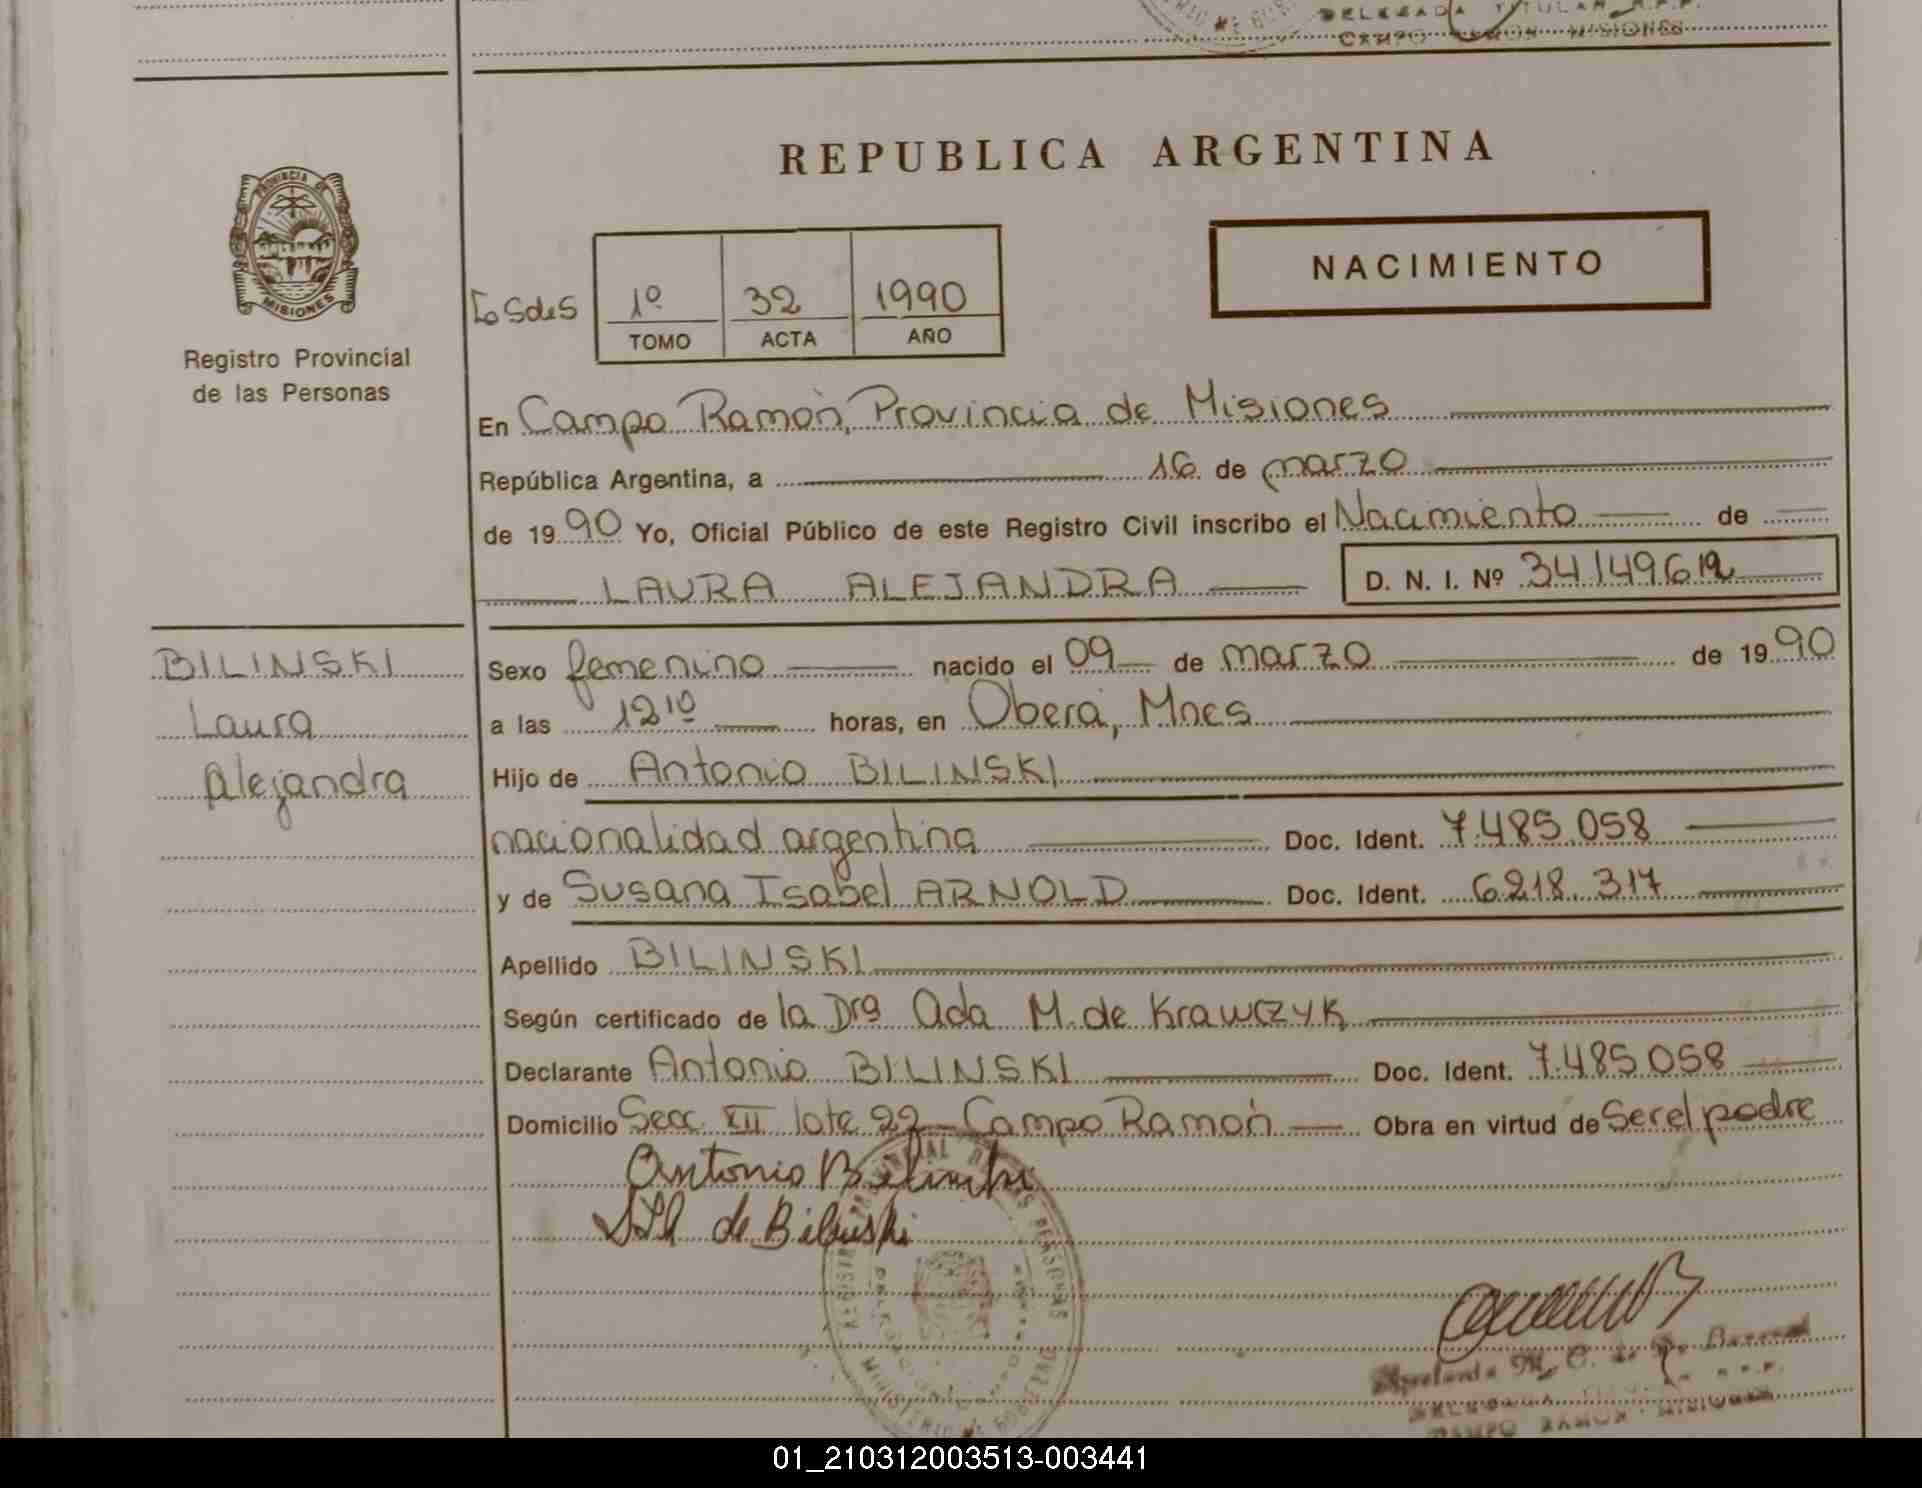 DELEGADA TITULAR R.P.P.
CAMPO RAMON MISIONES
PROVINCIA DE
MISIONES
Registro Provincial
de las Personas
REPUBLICA ARGENTINA
NACIMIENTO
1º 32 1990
TOMO ACTA AÑO
En Campo Ramón, Provincia de Misiones
República Argentina, a 16 de marzo
de 1990 Yo, Oficial Público de este Registro Civil inscribo el Nacimiento de
LAURA ALEJANDRA D. N. I. Nº 34149612
BILINSKI
Laura
Alejandra
Sexo femenino nacido el 09 de marzo de 1990
a las 12¹⁰ horas, en Oberá, Mnes
Hijo de Antonio BILINSKI
nacionalidad argentina Doc. Ident. 7.485.058
y de Susana Isabel ARNOLD Doc. Ident. 6.218.317
Apellido BILINSKI
Según certificado de la Dra Ada M. de Krawczyk
Declarante Antonio BILINSKI Doc. Ident. 7.485.058
Domicilio Secc. XII lote 22 - Campo Ramón Obra en virtud de Ser el padre
Antonio Bilinski
de Bilinski
CAMPO RAMON - MISIONES
01_210312003513-003441